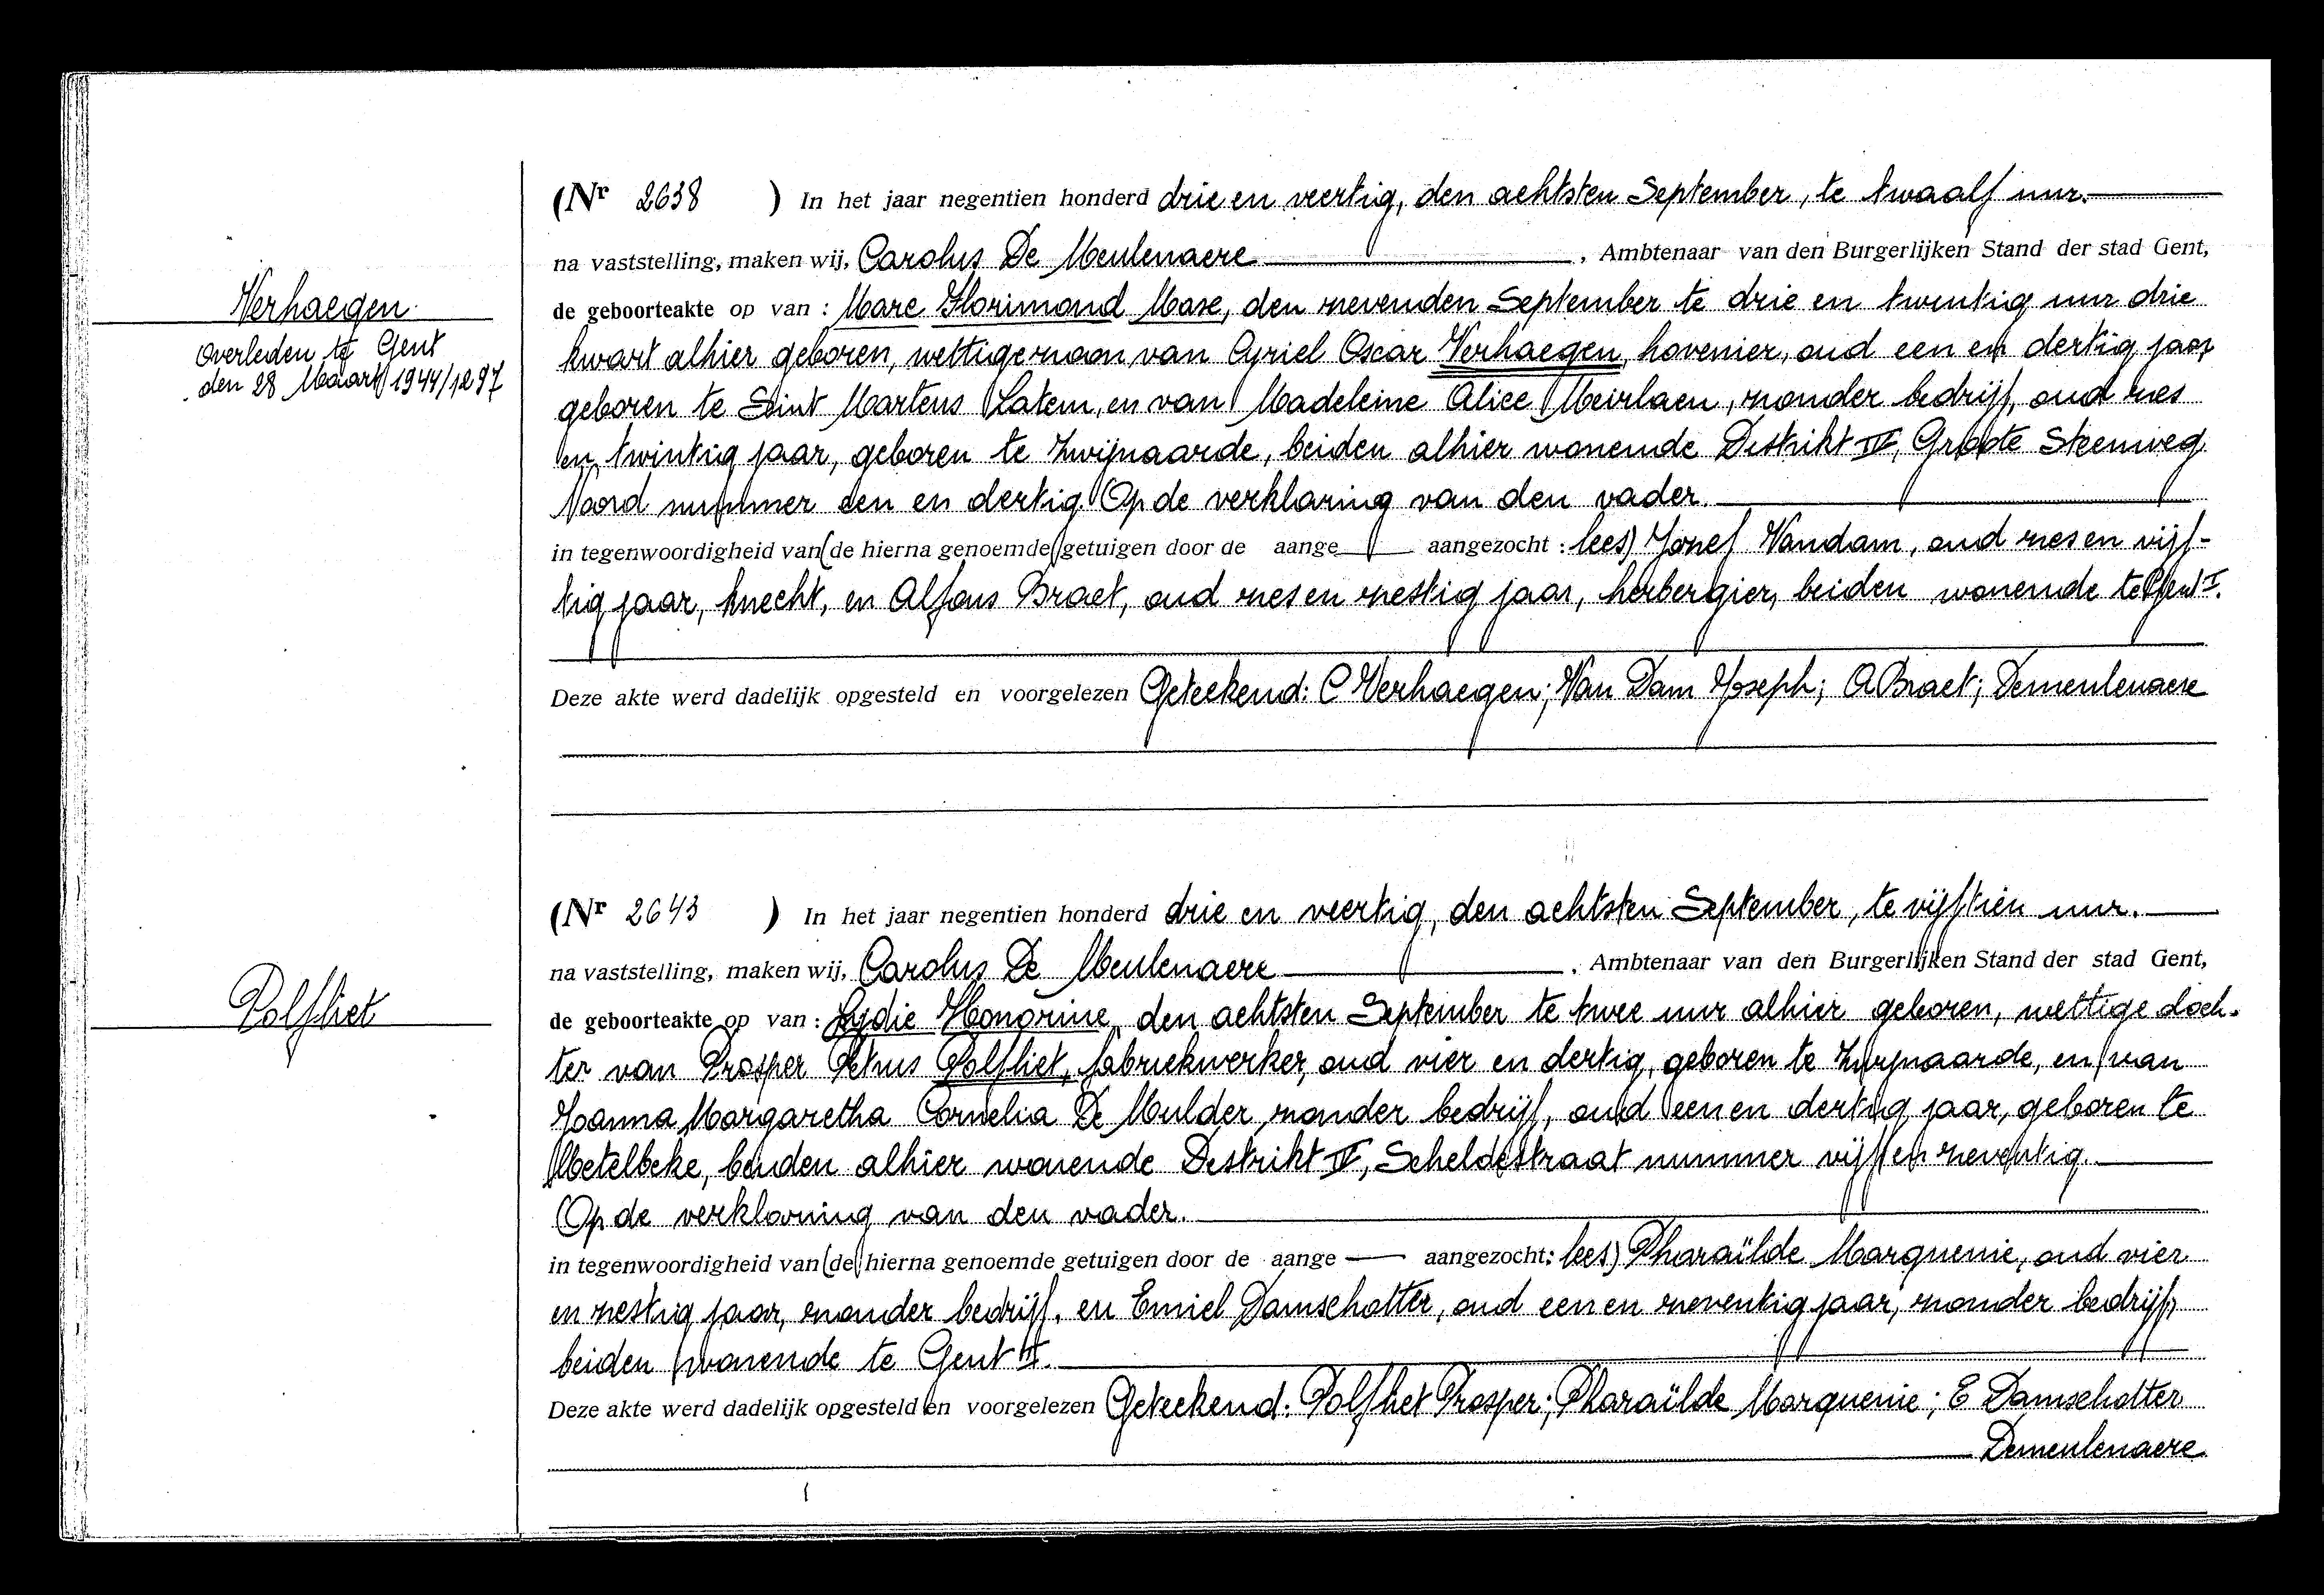 (Nr 2638 ) In het jaar negentien honderd drie en veertig, den achtsten September, te twaalf uur.
na vaststelling, maken wij, Carolus De Meulenaere, Ambtenaar van den Burgerlijken Stand der stad Gent,
Verhaegen
de geboorteakte op van : Marc Florimond Mase, den zevenden September te drie en twintig uur drie
Overleden te Gent
den 28 Maart 1944/1297
kwart alhier geboren, wettige zoon van Cyriel Oscar Verhaegen, hovenier, oud een en dertig jaar
geboren te Sint Martens Latem, en van Madeleine Alice Meirlaen, zonder bedrijf, oud zes
en twintig jaar, geboren te Zwijnaarde, beiden alhier wonende Distrikt IV, Groote Steenweg
Noord nummer een en dertig. Op de verklaring van den vader.
in tegenwoordigheid van (de hierna genoemde getuigen door de aange aangezocht : lees) Jozef Vandam, oud zes en vijf-
tig jaar, knecht, en Alfons Braet, oud zes en zestig jaar, herbergier, beiden wonende te Gent I.
Deze akte werd dadelijk opgesteld en voorgelezen Geteekend: C Verhaegen; Van Dam Joseph; A Braet; Demeulenaere
(Nr 2643 ) In het jaar negentien honderd drie en veertig, den achtsten September, te vijftien uur.
na vaststelling, maken wij, Carolus De Meulenaere, Ambtenaar van den Burgerlijken Stand der stad Gent,
Polfliet
de geboorteakte op van : Lydie Honorine, den achtsten September te twee uur alhier geboren, wettige doch-
ter van Prosper Petrus Polfliet, fabriekwerker, oud vier en dertig, geboren te Zwijnaarde, en van
Joanna Margaretha Cornelia De Mulder, zonder bedrijf, oud een en dertig jaar, geboren te
Metelbeke, beiden alhier wonende Distrikt IV, Scheldestraat nummer vijf en zeventig.
Op de verklaring van den vader.
in tegenwoordigheid van (de hierna genoemde getuigen door de aange aangezocht: lees) Pharaïlde Marquenie, oud vier
en zestig jaar, zonder bedrijf, en Emiel Damschotter, oud een en zeventig jaar, zonder bedrijf,
beiden wonende te Gent II.
Deze akte werd dadelijk opgesteld en voorgelezen Geteekend: Polfliet Prosper; Pharaïlde Marquenie; E Damschotter
Demeulenaere